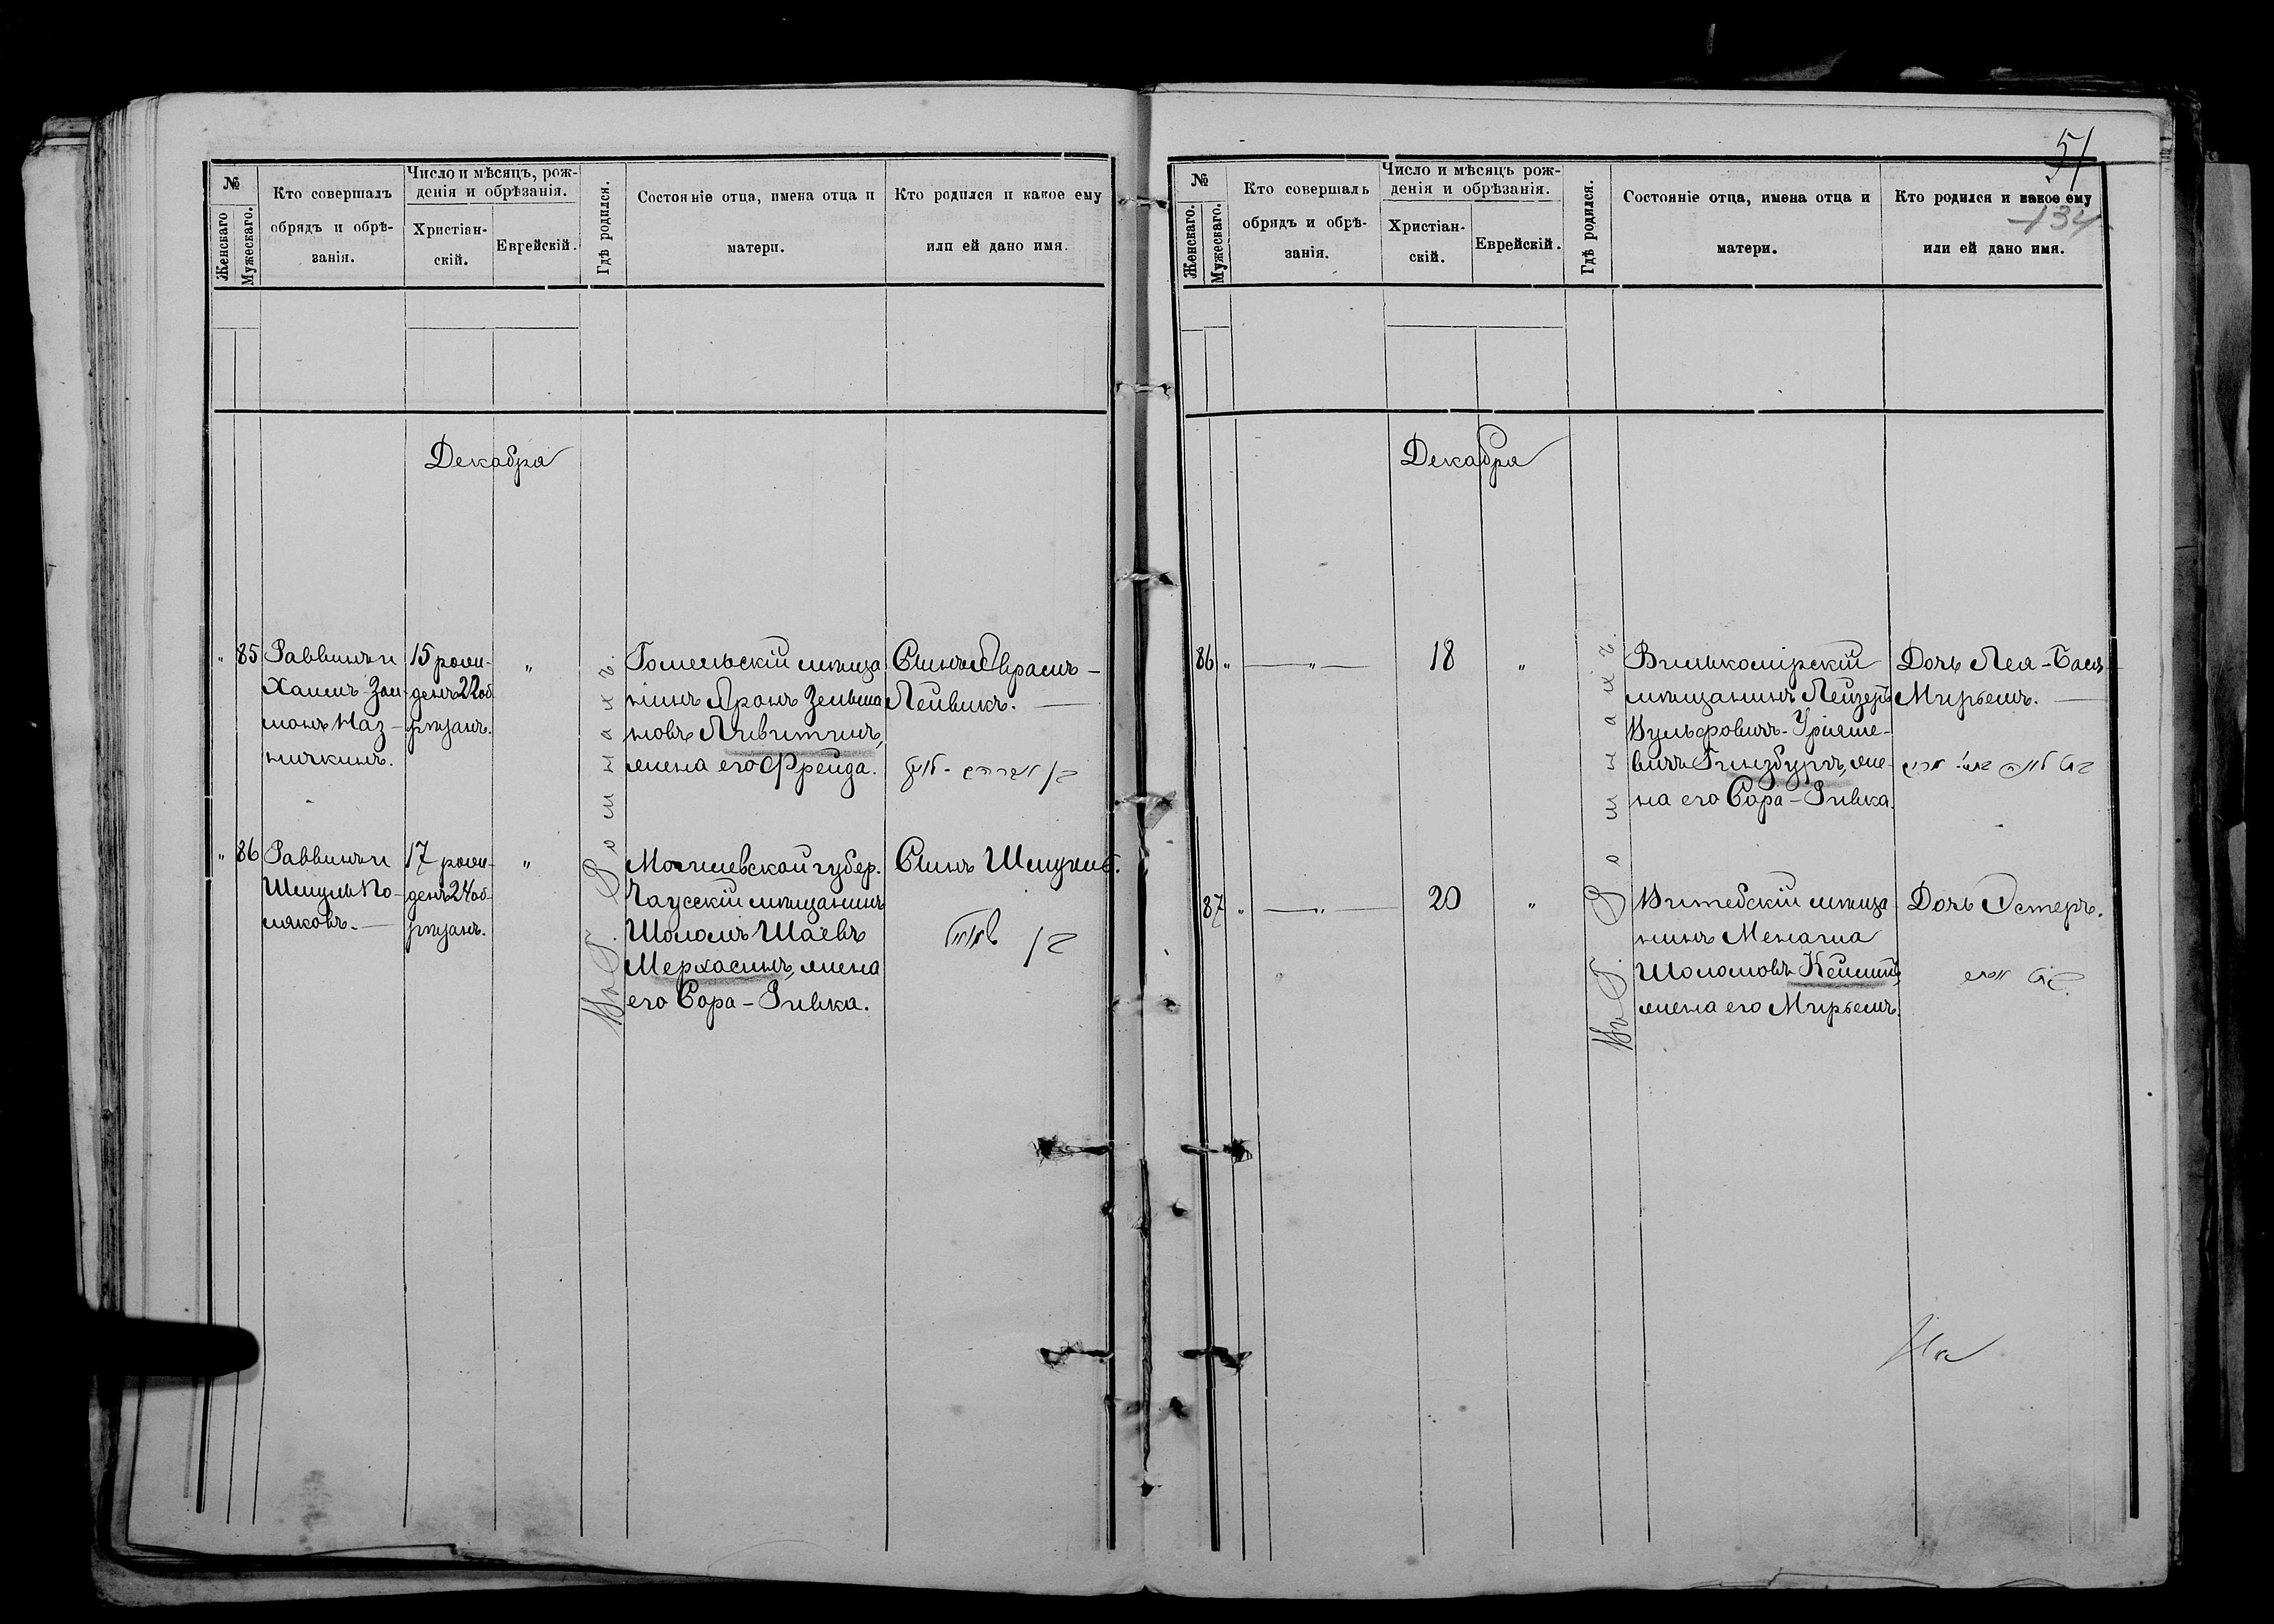 №
Женскаго
Мужескаго.
Кто совершалъ
обрядъ и обрѣ-
занія.
Число и мѣсяцъ, рож-
денія и обрѣзанія.
Христіан-
скій.
Еврейскій.
Гдѣ родился.
Состояніе отца, имена отца и
матери.
Кто родился и какое ему
или ей дано имя.
Декабря
" 85
Раввинъ и
Хаимъ Зал-
монъ Наз-
ничкинъ.
15 рож-
денъ 22 об
рѣзанъ.
"
Въ Г. Ромнахъ.
Гомельскій мѣща
нинъ Аронъ Зельма
новъ Ливитинъ,
жена его Фрейда.
Сынъ Аврамъ-
Лейвикъ.
" 86
Раввинъ и
Шмуль По-
ляковъ.
17 рож-
денъ 24 об
рѣзанъ.
"
Могилевской губер.
Чаусскій мѣщанинъ
Шоломъ Шаевъ
Мерхасинъ, жена
его Сора-Ривка.
Сынъ Шмуилъ.
בן שמואל
51
134
№
Женскаго.
Мужескаго.
Кто совершалъ
обрядъ и обрѣ-
занія.
Число и мѣсяцъ рож-
денія и обрѣзанія.
Христіан-
скій.
Еврейскій.
Гдѣ родился.
Состояніе отца, имена отца и
матери.
Кто родился и какое ему
или ей дано имя.
Декабря
86 "
— " —
18
"
Въ Г. Ромнахъ.
Вилькомірскій
мѣщанинъ Лейзеръ
Вульфовичъ-Уріяше-
вичъ Гинзбургъ, же-
на его Сора-Ривка.
Дочь Лея-Бася
Мирьемъ.
87 "
— " —
20
"
Витебскій мѣща
нинъ Менаша
Шоломовъ
жена его Мирьемъ.
Дочь Эстеръ.
בת אסתר
На